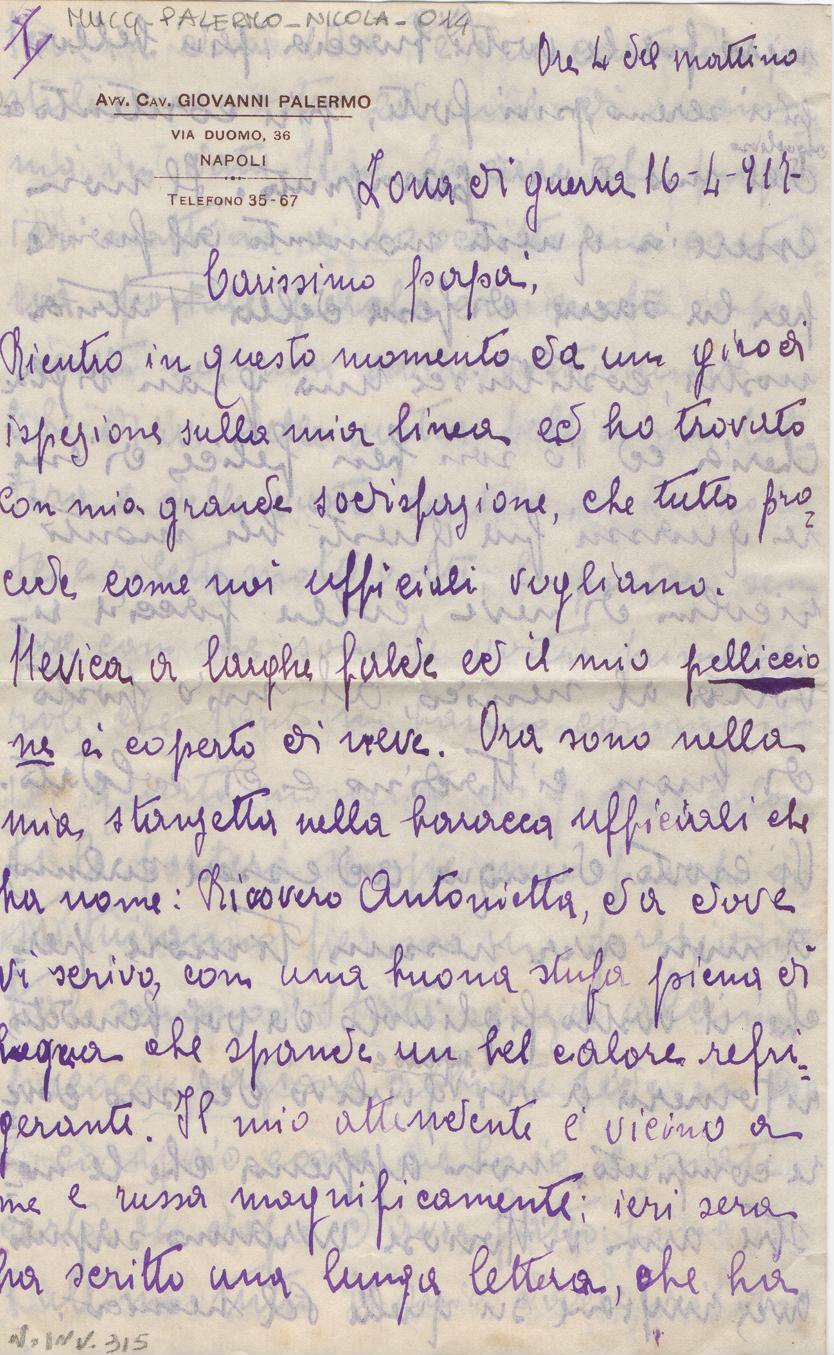 I
MUCC_PALERMO_NICOLA_014
Ore 4 del mattino
Avv. Cav. GIOVANNI PALERMO
VIA DUOMO, 36
NAPOLI
TELEFONO 35-67
Zona di guerra 16-4-917
Carissimo papà,
Rientro in questo momento da un giro di
ispezione sulla mia linea ed ho trovato
con mia grande sodisfazione, che tutto pro-
cede come noi ufficiali vogliamo.
Nevica a larghe falde ed il mio pelliccio
ne è coperto di neve. Ora sono nella
mia stanzetta nella baracca ufficiali che
ha nome: Ricovero Antonietta, da dove
vi scrivo, con una buona stufa piena di
legna che spande un bel calore refri-
gerante. Il mio attendente è vicino a
me e russa magnificamente; ieri sera
ha scritto una lunga lettera, che ha
N. INV. 315